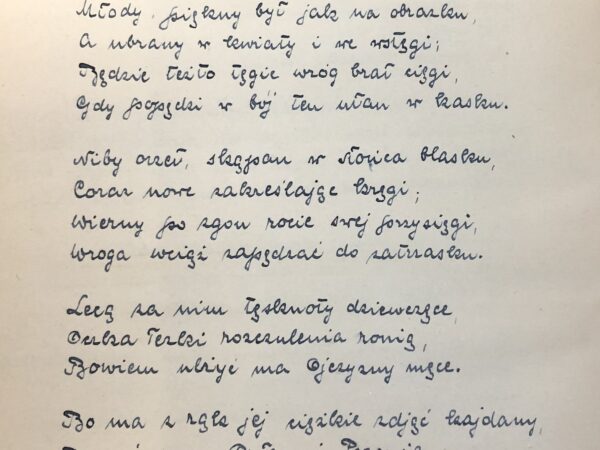 Młody, piękny był jak na obrazku,
A ubrany w kwiaty i we wstęgi;
Będzie też to tęgie wróg brał cięgi,
Gdy popędzi w bój ten ułan w kasku.
Niby orzeł, skąpan w słońca blasku,
Coraz nowe zakreślając kręgi;
Wierny po zgon rocie swej przysięgi,
Wroga wciąż zapędzać do zatrzasku.
Lecą za nim tęsknoty dziewczęce,
Oczka łezki rozczulenia ronią,
Bowiem ulżyć ma Ojczyzny męce.
Bo ma z rąk jej ciężkie zdjąć kajdany,